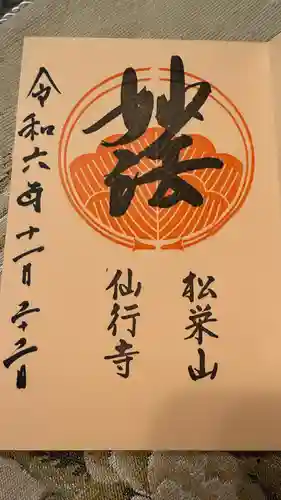 妙法
松栄山
仙行寺
令和六年十一月二十二日